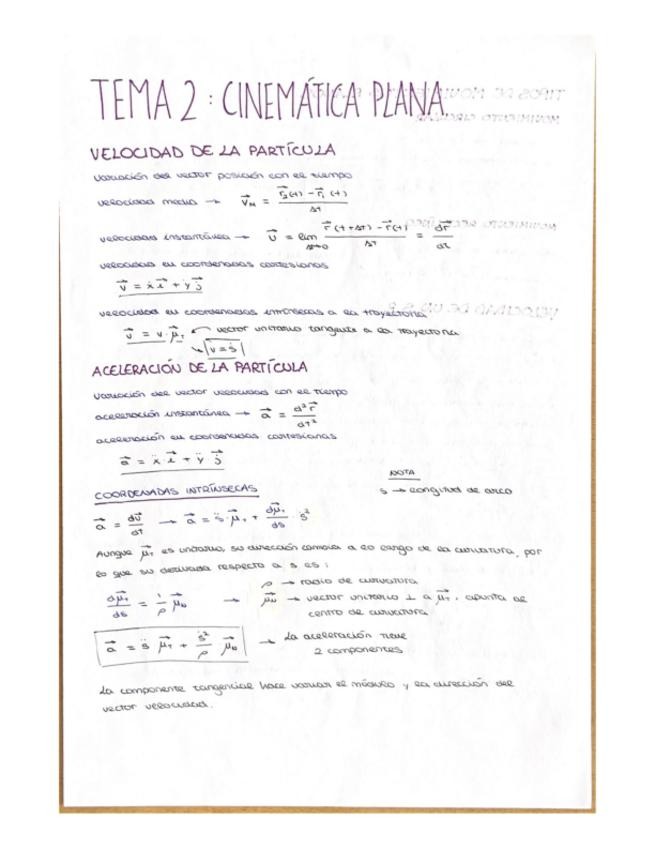 TEMA 2 : CINEMÁTICA PLANA
VELOCIDAD DE LA PARTÍCULA
variación del vector posición con el tiempo
velocidad media → v⃗_M = (r⃗₂(t) − r⃗₁(t)) / Δt
velocidad instantánea → v⃗ = lim_{Δt→0} (r⃗(t+Δt) − r⃗(t)) / Δt = dr⃗/dt
velocidad en coordenadas cartesianas
v⃗ = ẋ i⃗ + ẏ j⃗
velocidad en coordenadas intrínsecas a la trayectoria
v⃗ = v · μ⃗_T ← vector unitario tangente a la trayectoria
↳ |v = ṡ|
ACELERACIÓN DE LA PARTÍCULA
variación del vector velocidad con el tiempo
aceleración instantánea → a⃗ = d²r⃗/dt²
aceleración en coordenadas cartesianas
a⃗ = ẍ i⃗ + ÿ j⃗
NOTA
s → longitud de arco
COORDENADAS INTRÍNSECAS
a⃗ = dv⃗/dt → a⃗ = s̈ · μ⃗_T + dμ⃗_T/ds · ṡ²
Aunque μ⃗_T es unitario, su dirección cambia a lo largo de la curvatura, por
lo que su derivada respecto a s es :
ρ → radio de curvatura
dμ⃗_T/ds = 1/ρ μ⃗_N → μ⃗_N → vector unitario ⊥ a μ⃗_T, apunta al
centro de curvatura
a⃗ = s̈ μ⃗_T + ṡ²/ρ μ⃗_N → La aceleración tiene
2 componentes
La componente tangencial hace variar el módulo y la dirección del
vector velocidad.